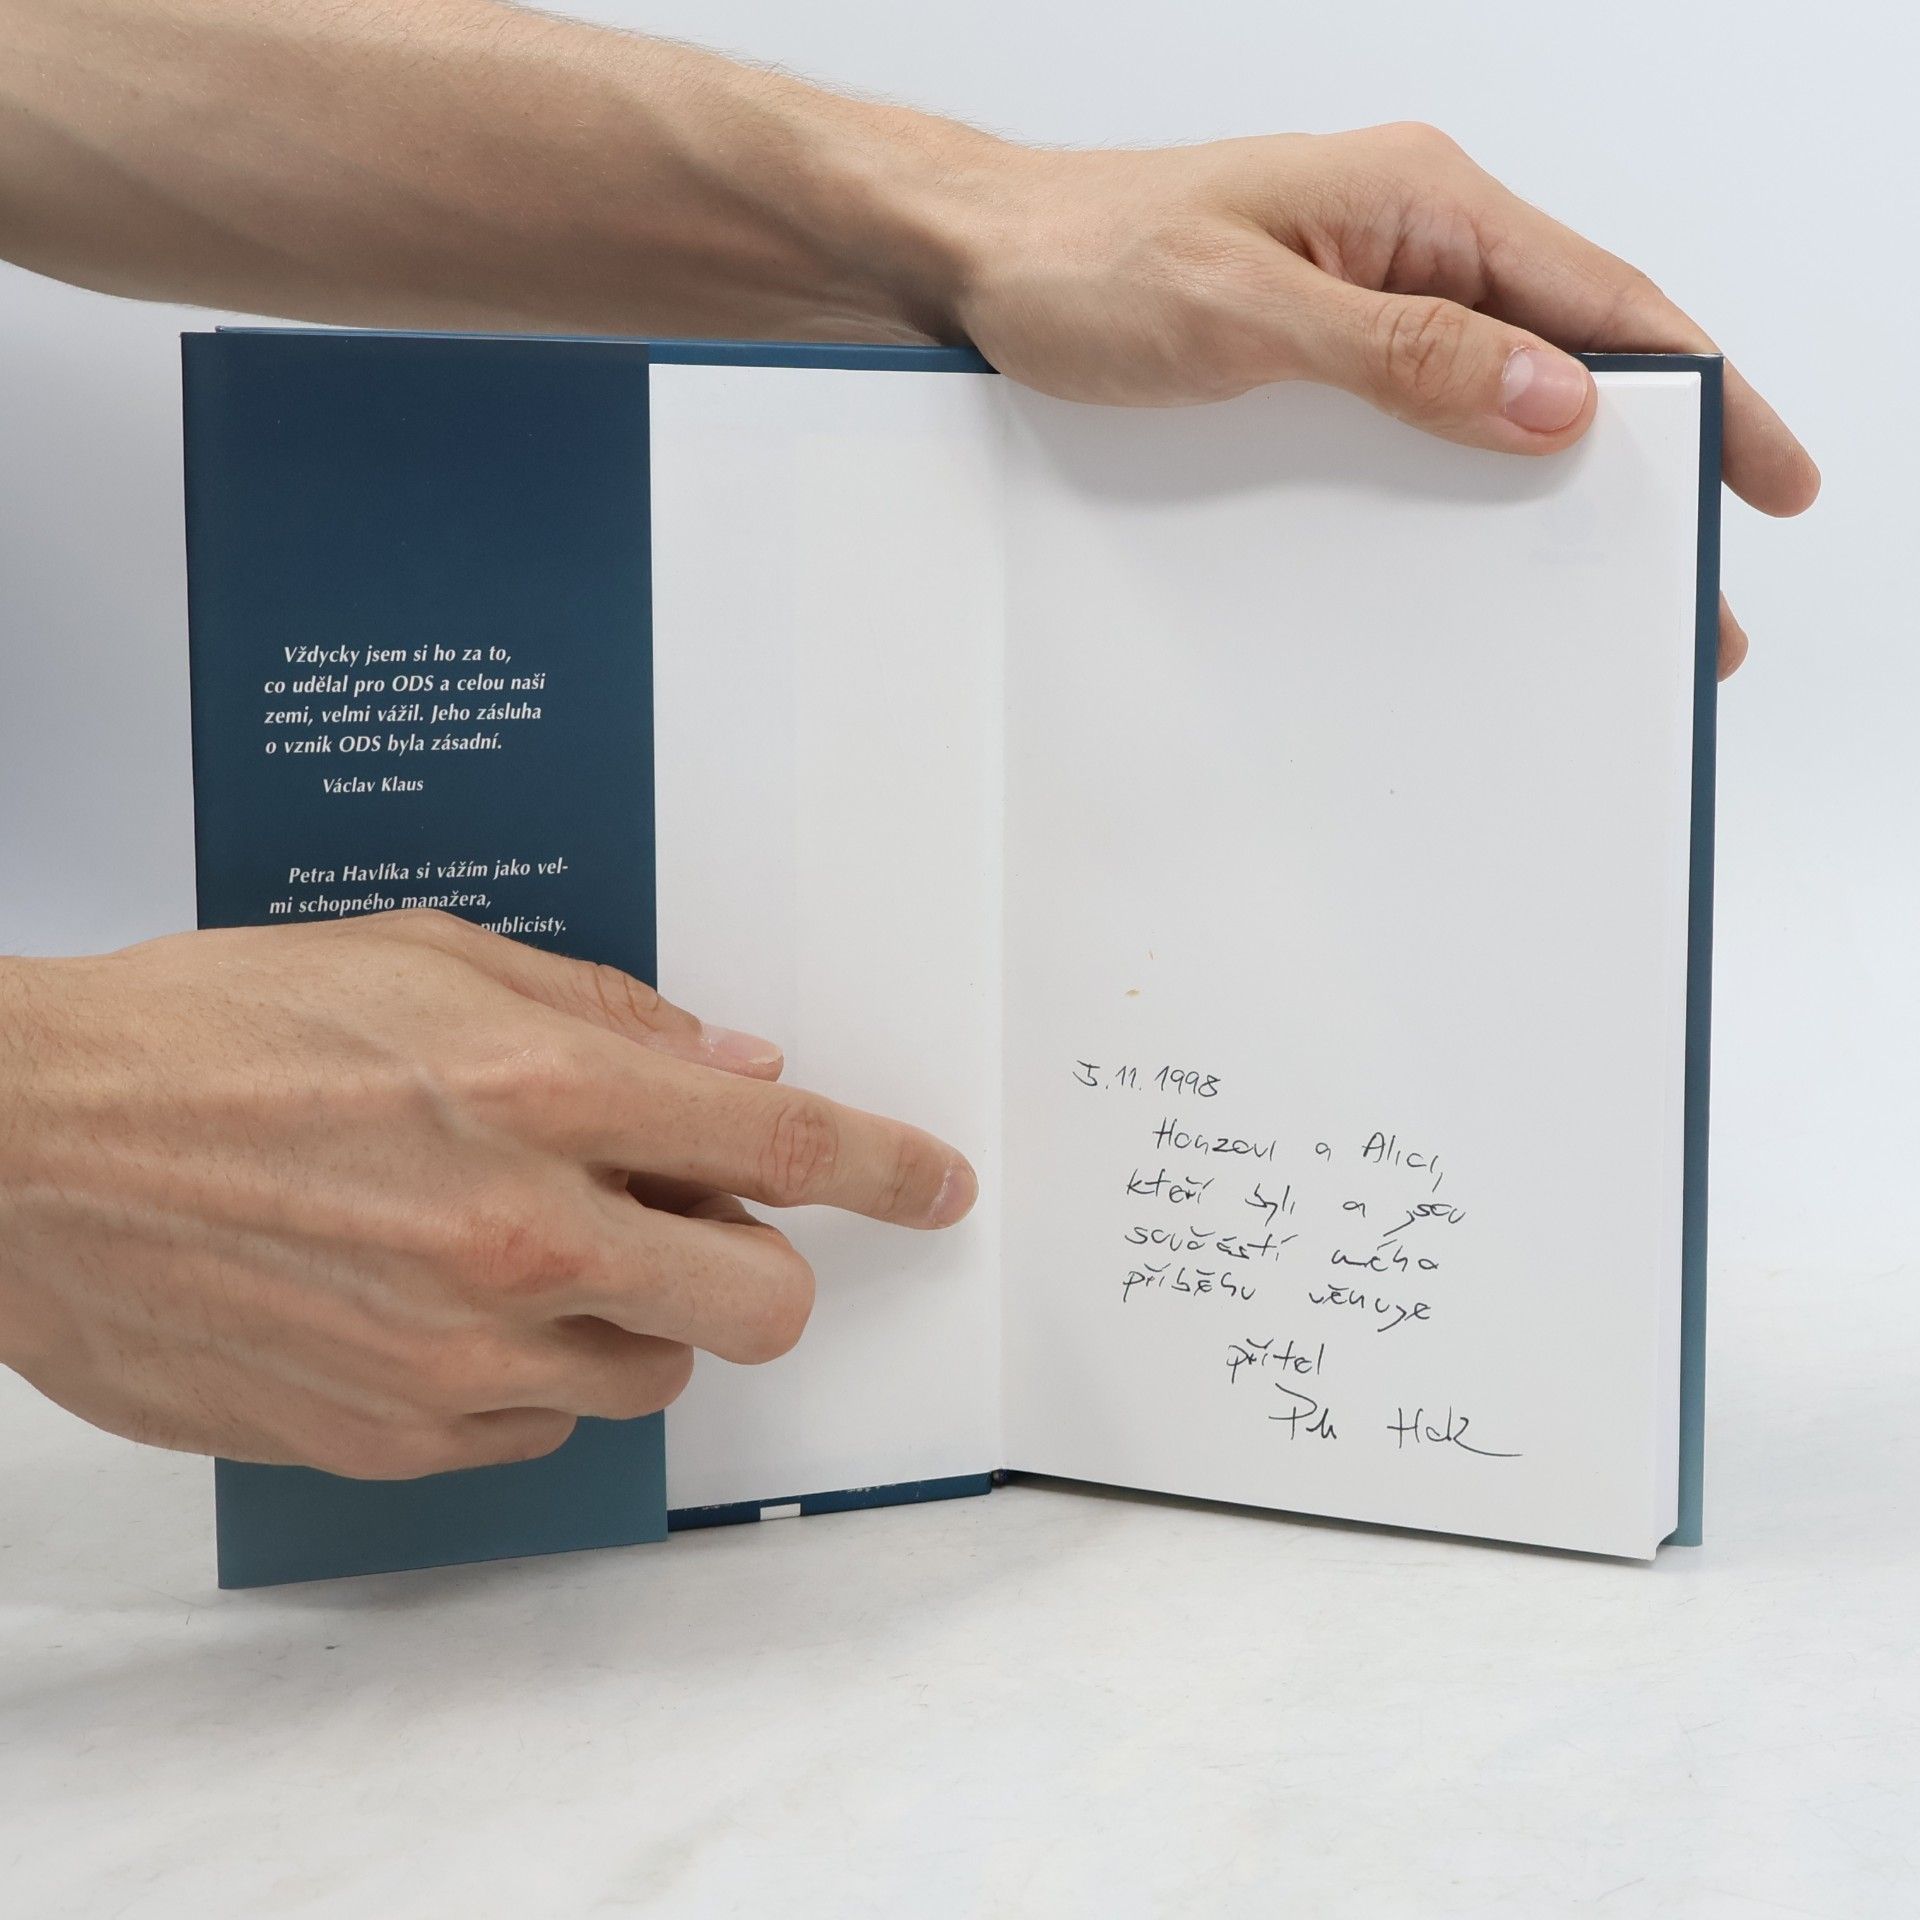 Vždycky jsem si ho za to,
co udělal pro ODS a celou naši
zemi, velmi vážil. Jeho zásluha
o vznik ODS byla zásadní.
Václav Klaus
Petra Havlíka si vážím jako vel-
mi schopného manažera,
publicisty.
5.11.1998
Honzovi a Alici,
kteří byli a jsou
součástí mého
příběhu věnuje
přítel